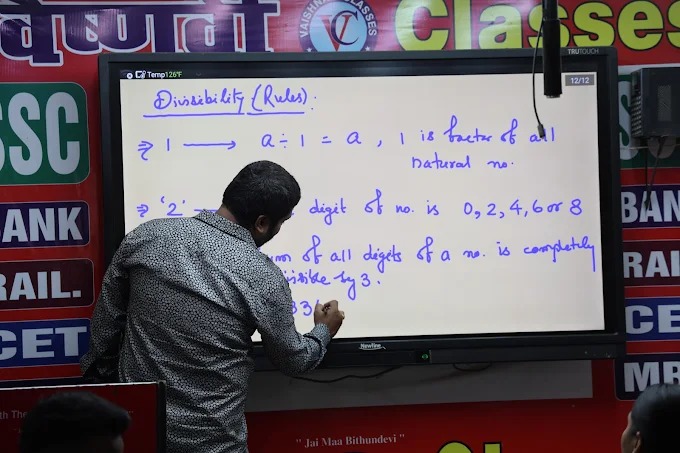 वैष्णवी
VAISHNAVI CLASSES
VC
Classes
TRUTOUCH
Temp126°F
12/12
Divisibility (Rules):
⇒ 1 ⟶ a ÷ 1 = a , 1 is factor of all
natural no.
⇒ '2' digit of no. is 0, 2, 4, 6 or 8
of all digits of a no. is completely
by 3.
33
Newline
SSC
BANK
RAIL.
CET
BAN
RAI
CE
MB
" Jai Maa Bithundevi "